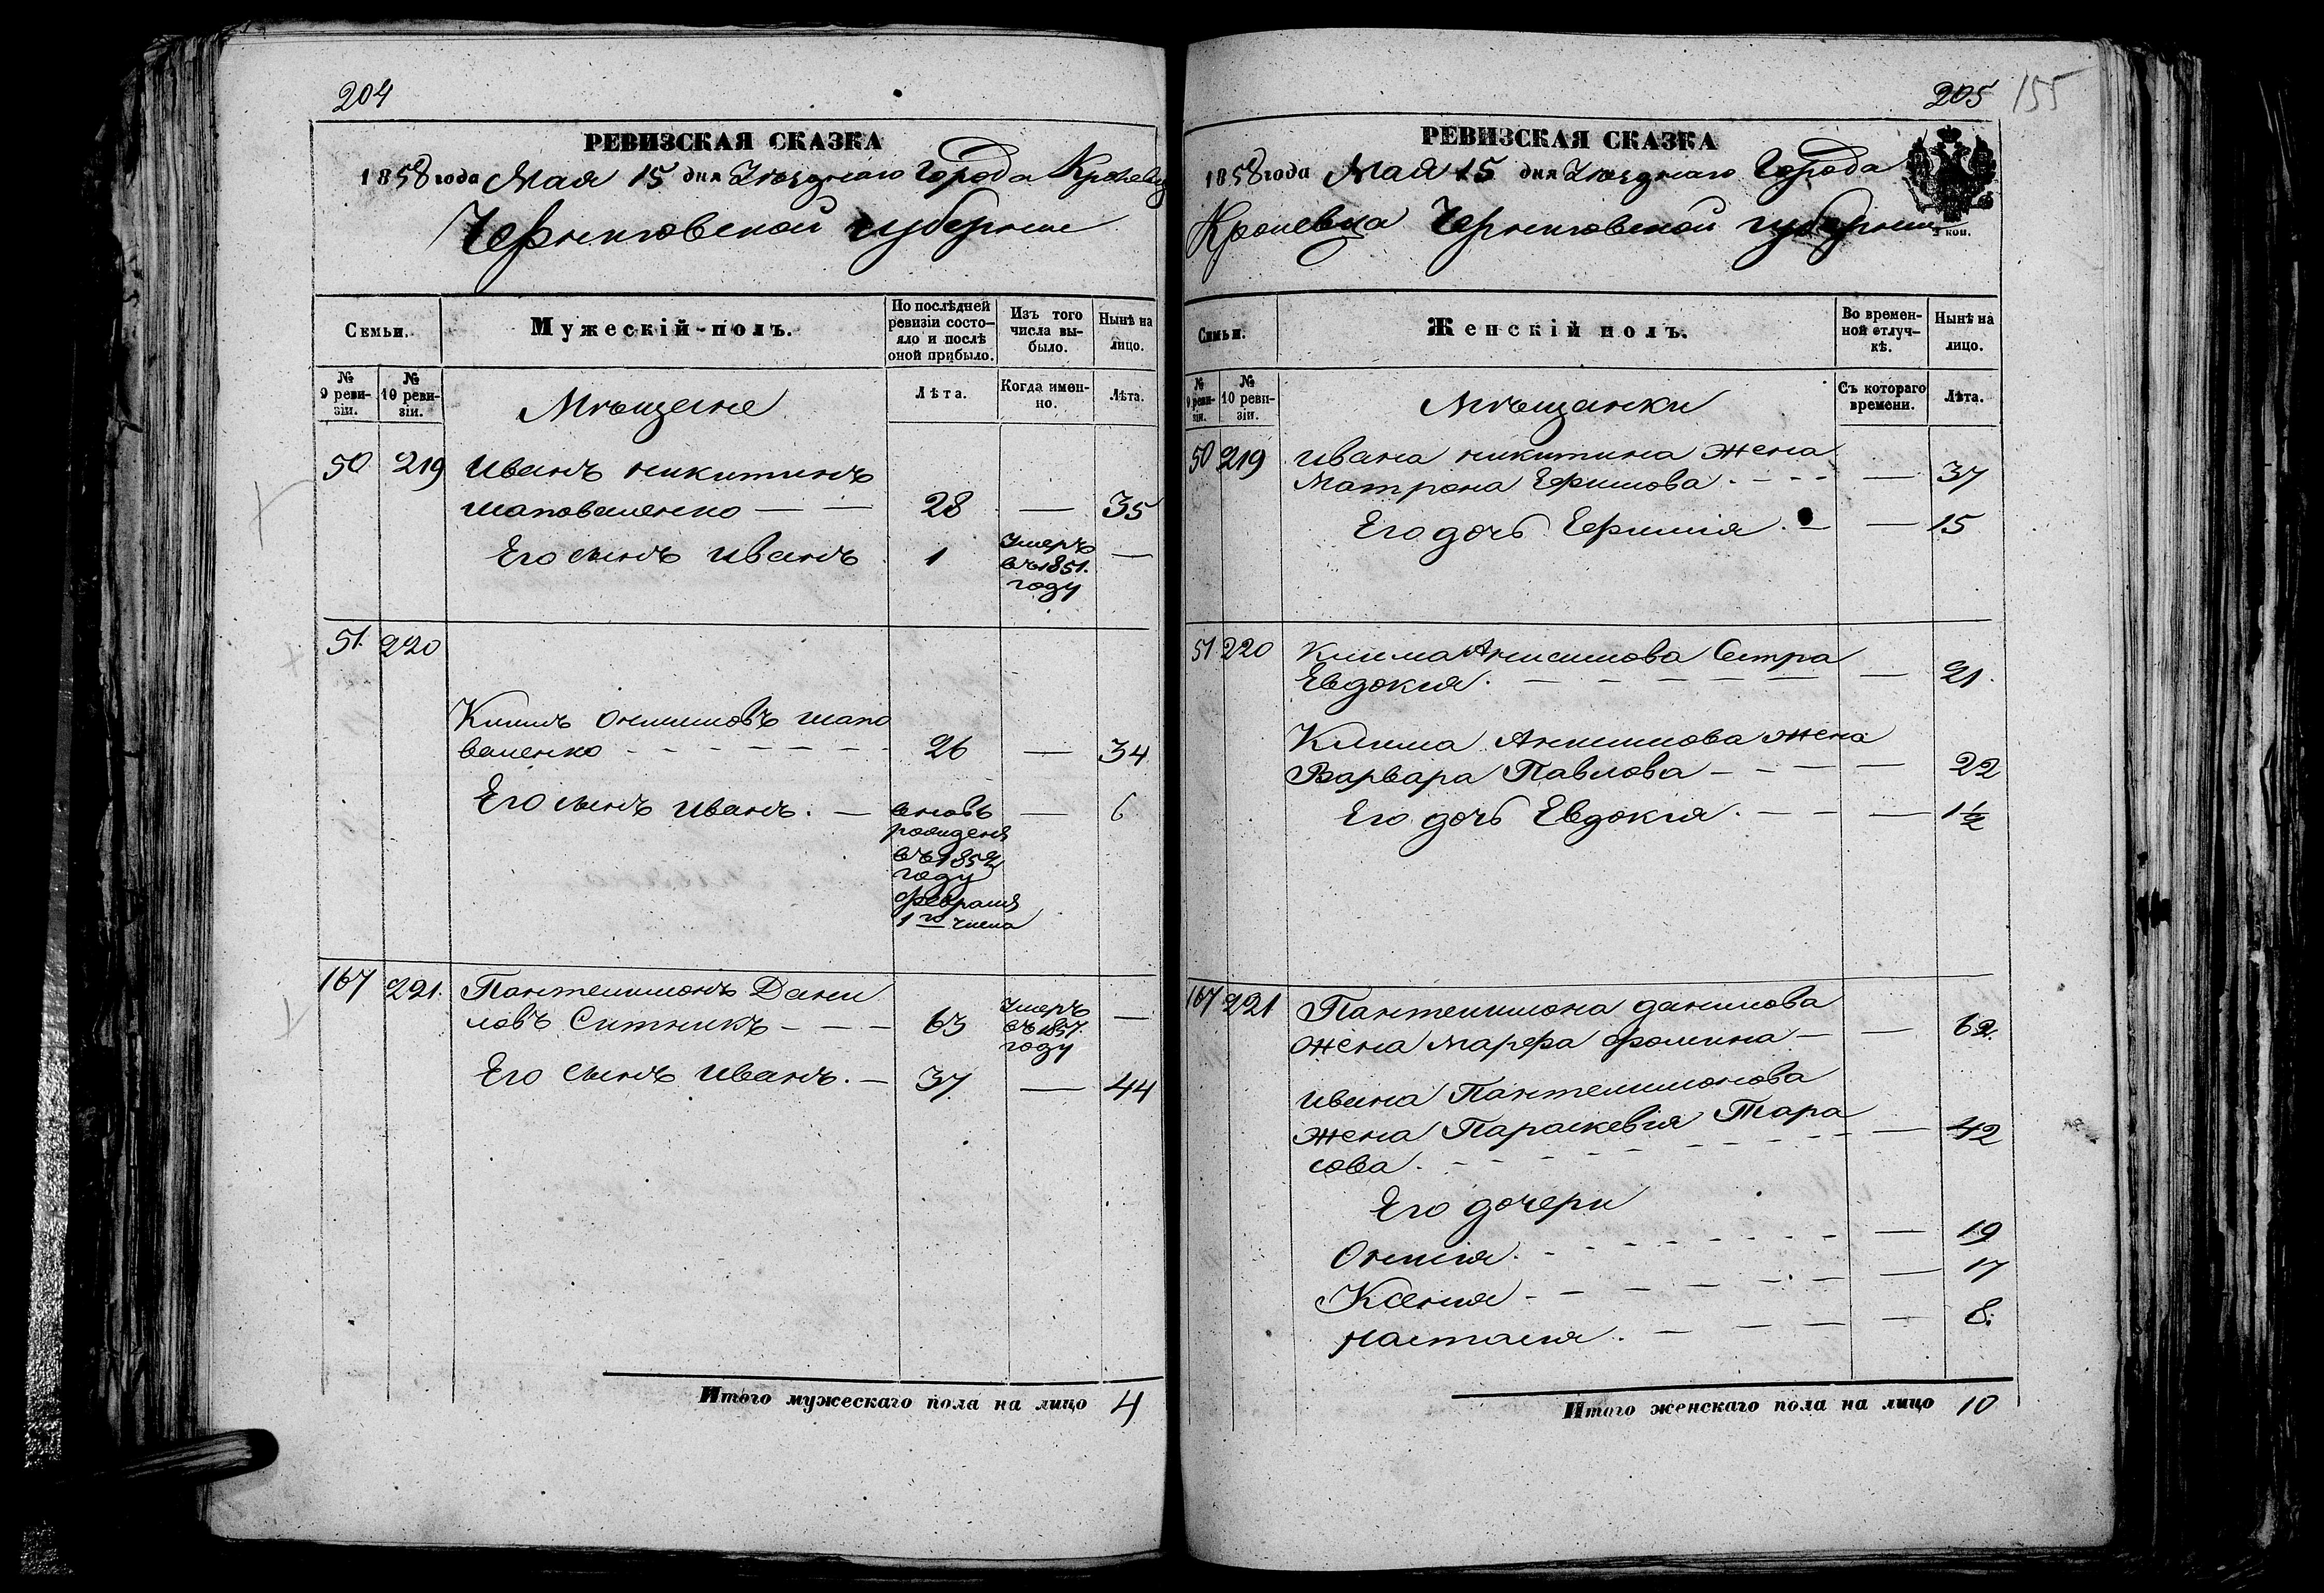 204
РЕВИЗСКАЯ СКАЗКА
1858 года Мая 15 дня Уѣзднаго Города Кролевца
Черниговской губернии
Семьи.
Мужескій-полъ.
По послѣдней ревизіи состо-
яло и послѣ оной прибыло.
Изъ того числа вы-
было.
Нынѣ на лицо.
№ 9 реви-
зіи.
№ 10 реви-
зіи.
Мѣщане
Лѣта.
Когда имен-
но.
Лѣта.
50 219 Иванъ никитинъ
шаповаленко — — 28 — 35
Его сынъ иванъ 1 Умеръ —
въ 1851.
году
51. 220
Климъ Онисимовъ шапо
валенко - - - - - - - 26 — 34
Его сынъ иванъ. — вновь — 6
рожденъ
въ 1852
году
февраля
1го числа
167 221. Пантелимонъ Дани
ловъ Ситникъ - - - 63 Умеръ —
въ 1857.
году
Его сынъ иванъ. — 37. — 44
Итого мужескаго пола на лицо 4
205 155
РЕВИЗСКАЯ СКАЗКА
1858 года Мая 15 дня Уѣзднаго Города
Кролевца Черниговской губернии
коп.
Семьи.
Женскій полъ.
Во времен-
ной отлуч-
кѣ.
Нынѣ на лицо.
№ 9 реви-
зіи.
№ 10 реви-
зіи.
Мѣщанки
Съ котораго времени.
Лѣта.
50 219 ивана никитина жена
Матрона Ефимова. - - - — 37
Его дочь Ефимія. — — 15
51 220 Клима Анисимова Сестра
Евдокия. — — — — — — 21.
Клима Анисимова жена
Варвара Павлова - - - — — 22
Его дочь Евдокия. - — — — 1½
167 221 Пантелимона данилова
жена марфа фомина — — 62.
ивана Пантелимонова
жена Параскевія Тара
сова. - - - - - — 42
Его дочери
Онисія. - - - - - — 19
Ксения - - - - - — 17
настасия. — — — — — 8.
Итого женскаго пола на лицо 10